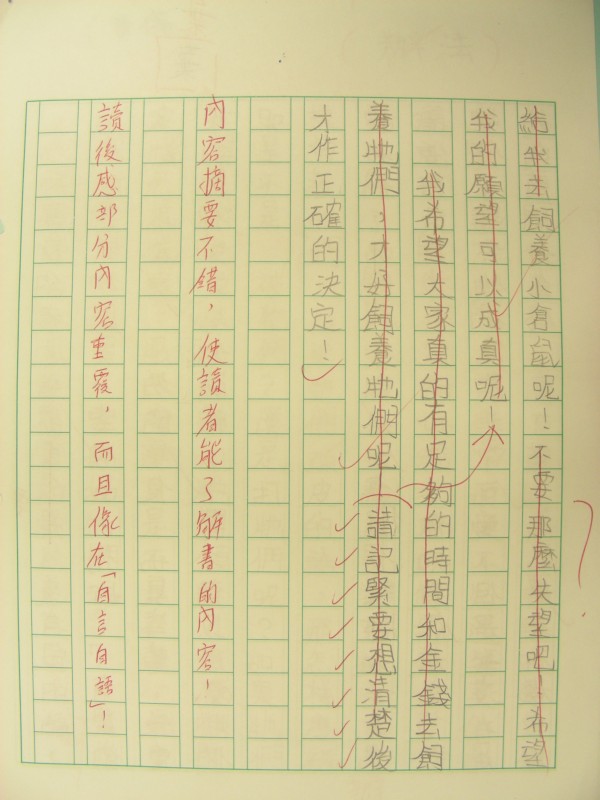 給我去飼養小倉鼠呢！不要那麼失望吧！希望
我的願望可以成真呢！
我希望大家真的有足夠的時間和金錢去飼
養牠們，才好飼養牠們呢 請記緊要想清楚後
才作正確的決定！
內容摘要不錯，使讀者能了解書的內容！
讀後感部分內容重覆，而且像在「自言自語」！